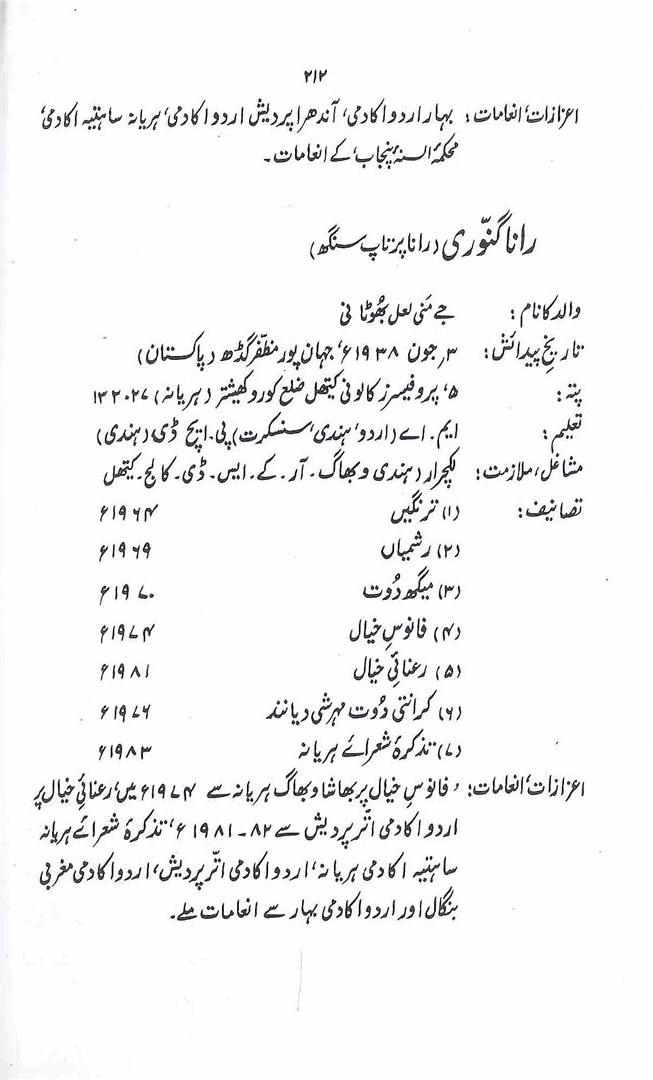 ۲۱۲
اعزازات، انعامات: بہار اردو اکادمی، آندھرا پردیش اردو اکادمی، ہریانہ ساہتیہ اکادمی،
محکمۂ السنہ پنجاب، کے انعامات۔
رانا گنّوری (رانا پرتاپ سنگھ)
والد کا نام: جے مَنی لعل بھُوٹانی
تاریخِ پیدائش: ۳، جون ۱۹۳۸ء، جہان پور مظفّر گڈھ (پاکستان)
پتہ: ۵، پروفیسرز کالونی کیتھل ضلع کوروکھیشتر (ہریانہ) ۱۳۲۰۲۷
تعلیم: ایم۔اے (اردو، ہندی، سنسکرت) پی۔ایچ ڈی (ہندی)
مشاغل، ملازمت: لکچرار (ہندی وبھاگ۔ آر۔ کے۔ ایس۔ ڈی۔ کالج۔ کیتھل
تصانیف: (۱) ترنگیں ۱۹۶۴ء
(۲) رشمیاں ۱۹۶۹ء
(۳) میگھ دُوت ۱۹۷۰ء
(۴) فانوسِ خیال ۱۹۷۴ء
(۵) رعنائیِ خیال ۱۹۸۱ء
(۶) کرانتی دُوت مہرشی دیانند ۱۹۷۶ء
(۷) تذکرۂ شعرائے ہریانہ ۱۹۸۳ء
اعزازات، انعامات: ، فانوسِ خیال پر بھاشا وبھاگ ہریانہ سے ۱۹۷۴ء میں، رعنائیِ خیال پر
اردو اکادمی اتّر پردیش سے ۸۲۔۱۹۸۱ء، تذکرۂ شعرائے ہریانہ
ساہتیہ اکادمی ہریانہ، اردو اکادمی اتّر پردیش، اردو اکادمی مغربی
بنگال اور اردو اکادمی بہار سے انعامات ملے۔